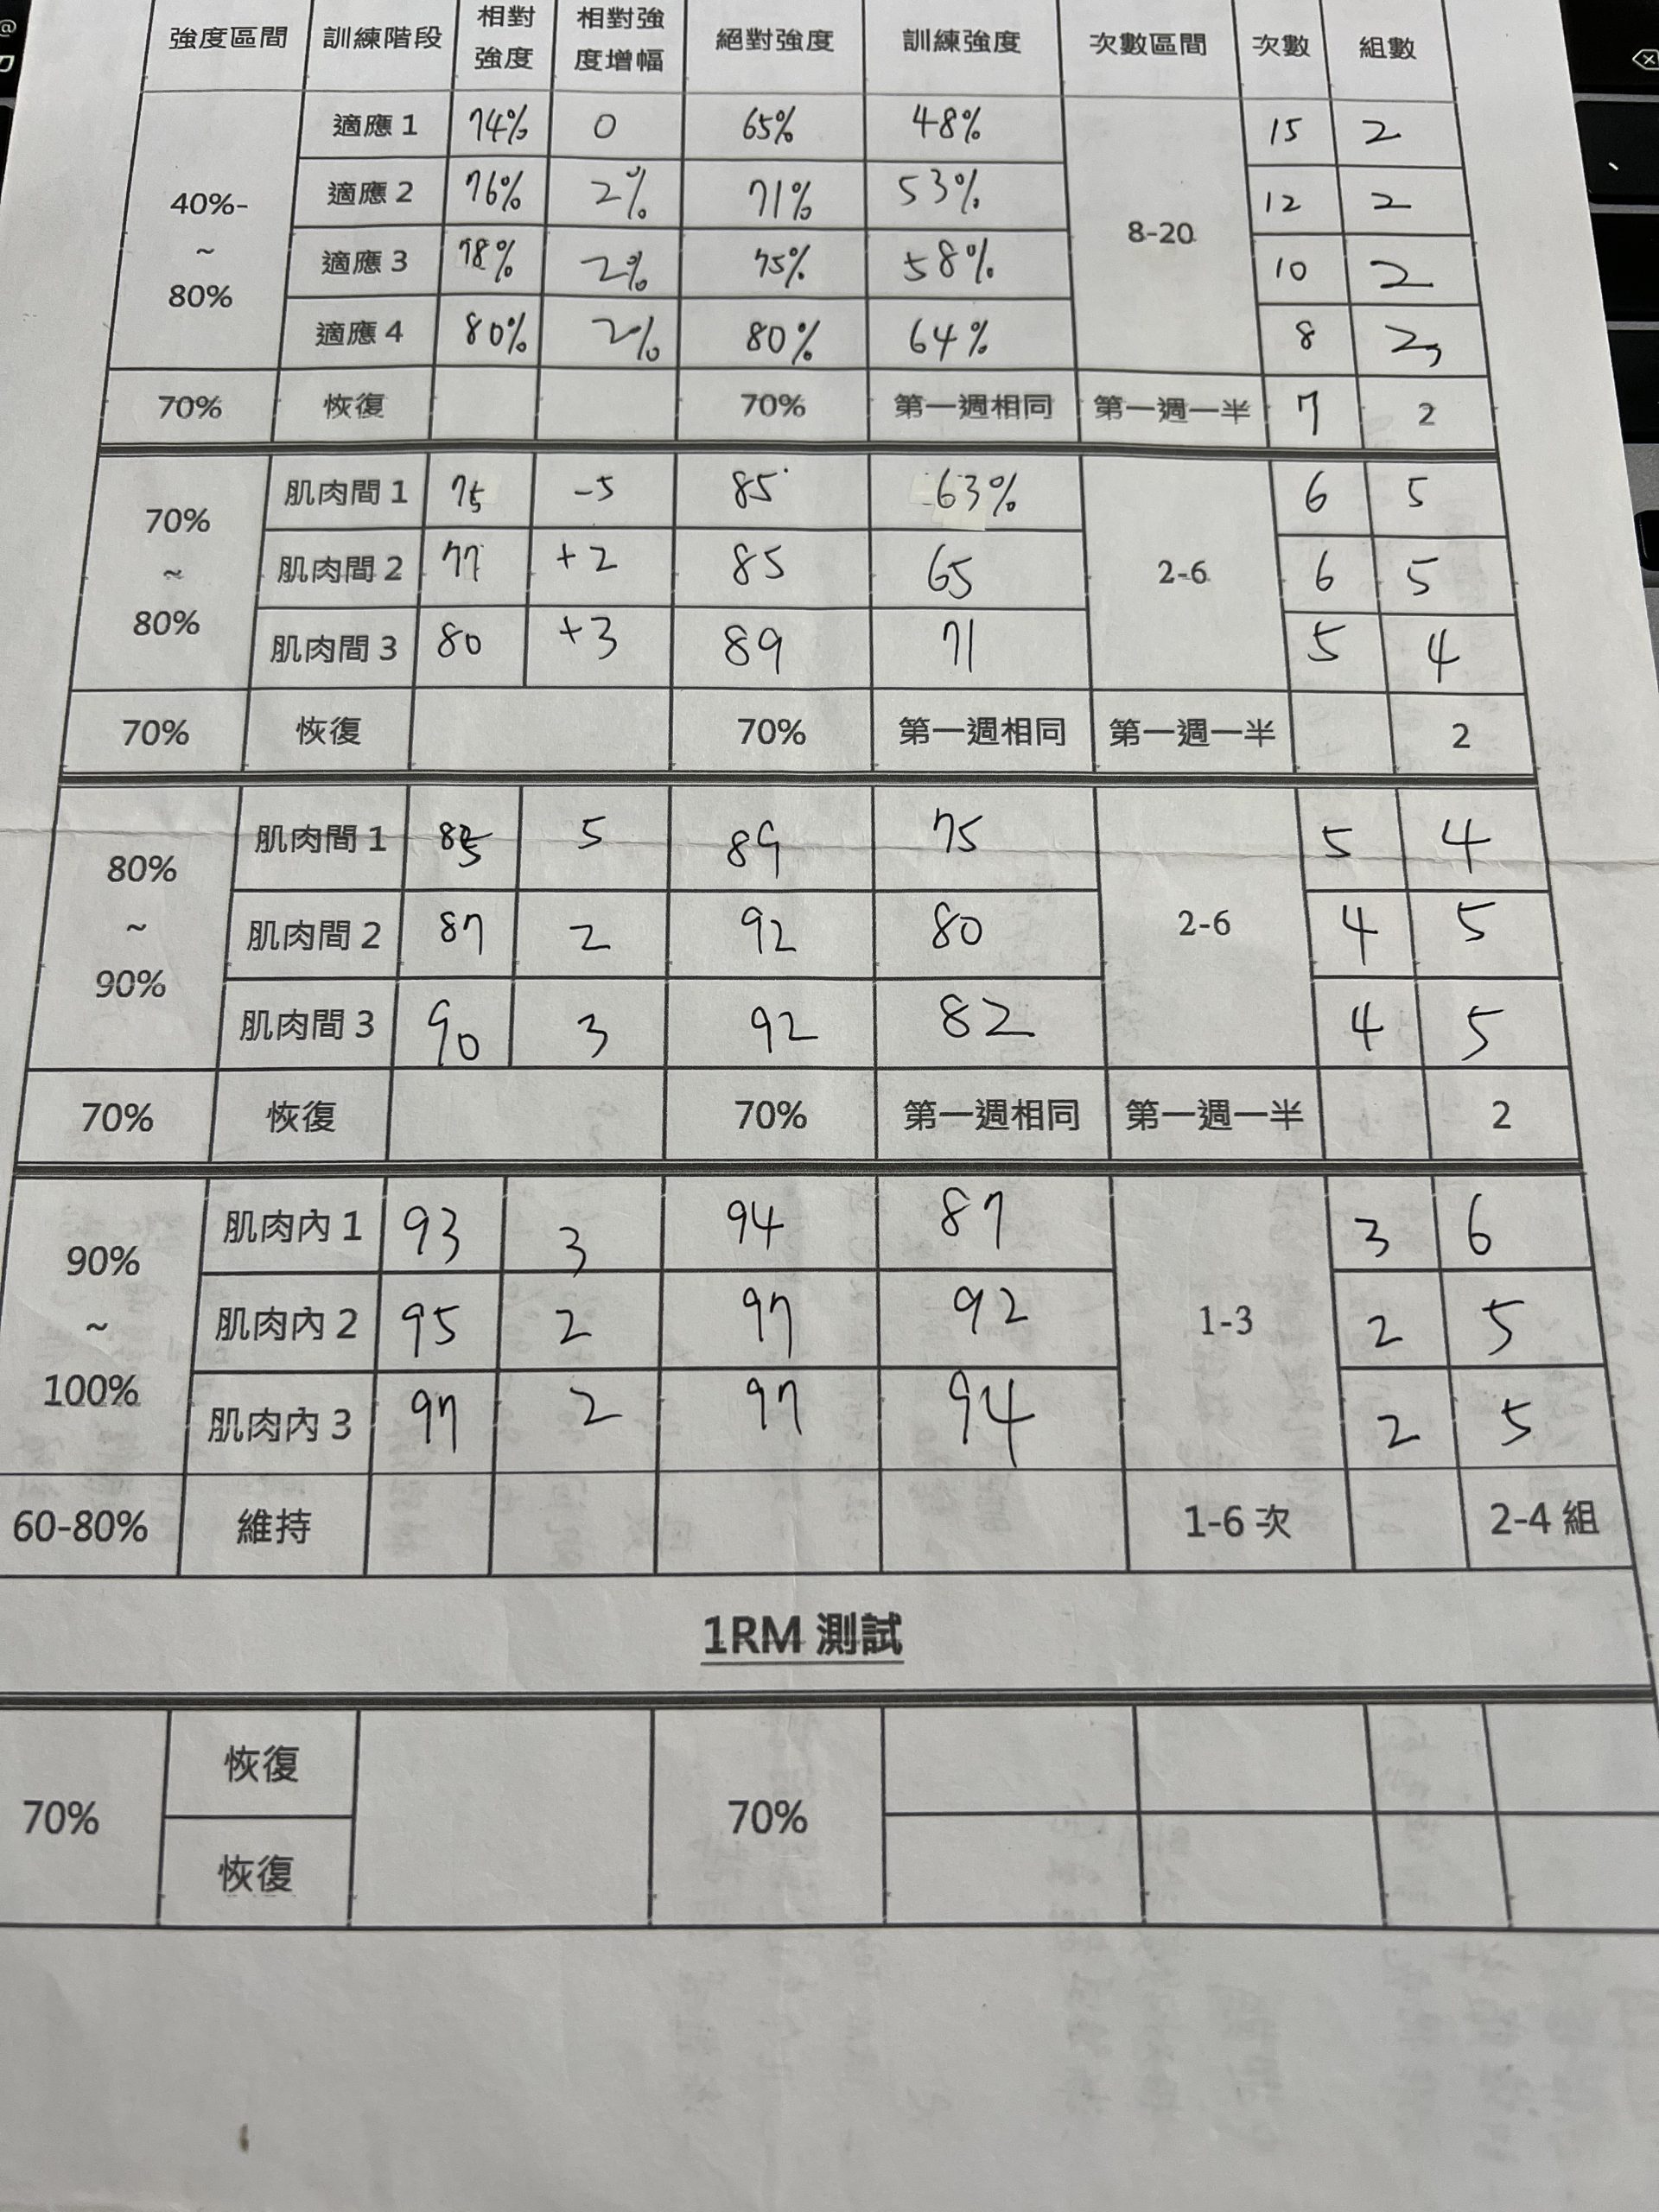 強度區間 訓練階段 相對強度 相對強度增幅 絕對強度 訓練強度 次數區間 次數 組數
40%-~80% 適應1 74% 0 65% 48% 8-20 15 2
適應2 76% 2% 71% 53% 12 2
適應3 78% 2% 75% 58% 10 2
適應4 80% 2% 80% 64% 8 2
70% 恢復 70% 第一週相同 第一週一半 7 2
70%~80% 肌肉間1 75 -5 85 63% 2-6 6 5
肌肉間2 77 +2 85 65 6 5
肌肉間3 80 +3 89 71 5 4
70% 恢復 70% 第一週相同 第一週一半 2
80%~90% 肌肉間1 85 5 89 75 2-6 5 4
肌肉間2 87 2 92 80 4 5
肌肉間3 90 3 92 82 4 5
70% 恢復 70% 第一週相同 第一週一半 2
90%~100% 肌肉內1 93 3 94 87 1-3 3 6
肌肉內2 95 2 97 92 2 5
肌肉內3 97 2 97 94 2 5
60-80% 維持 1-6次 2-4組
1RM 測試
70% 恢復 70%
恢復